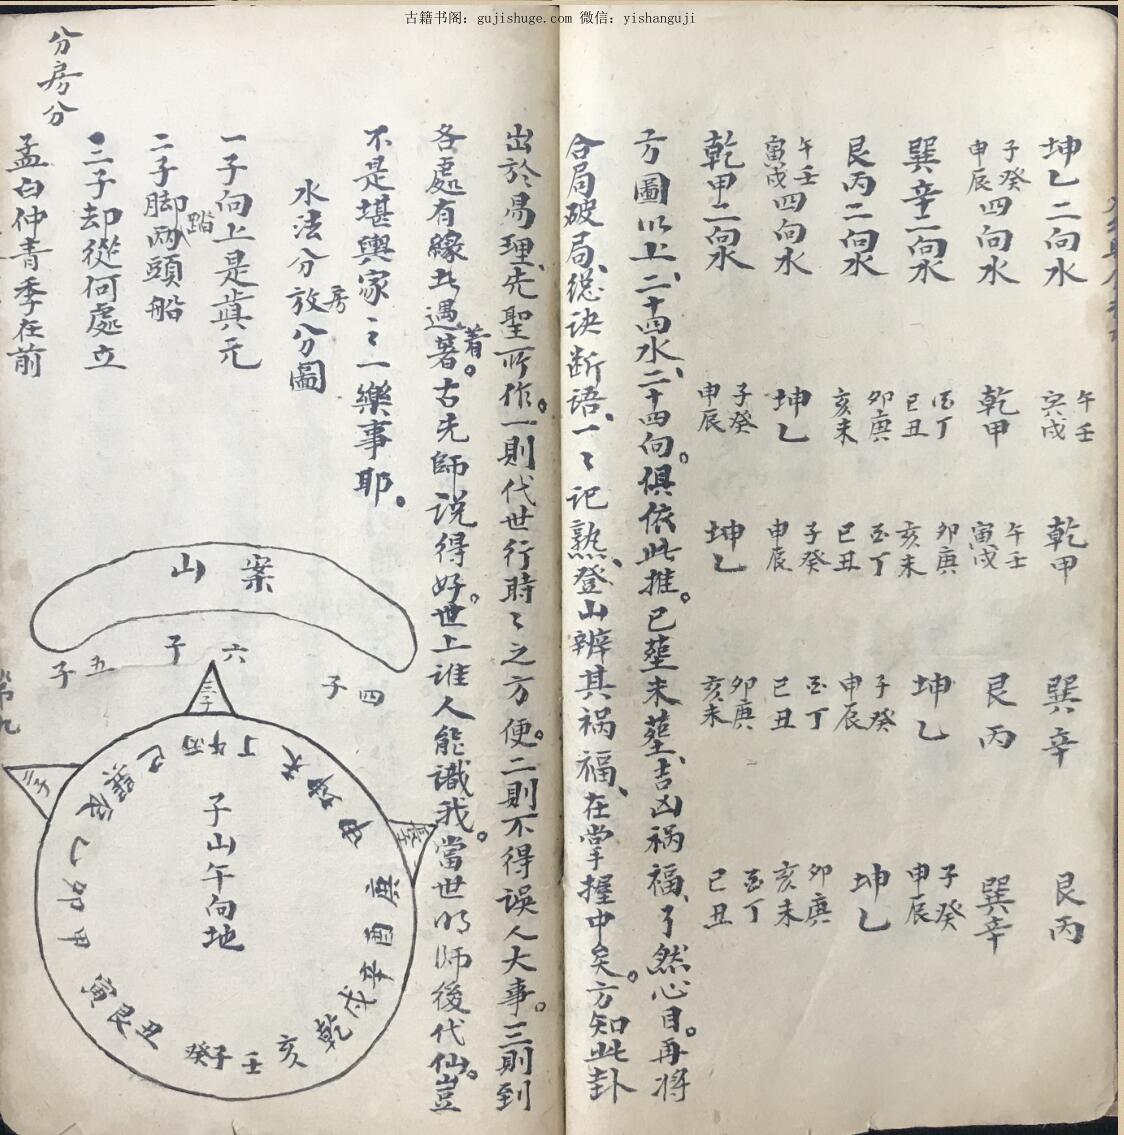 古籍书阁：gujishuge.com 微信：yishanguji
坤乙二向水 午壬寅戌 乾甲 巽辛 艮丙
子癸申辰四向水 乾甲 午壬寅戌 艮丙 巽辛
巽辛二向水 酉丁巳丑 卯庚亥未 坤乙 子癸申辰
艮丙二向水 卯庚亥未 酉丁巳丑 子癸申辰 坤乙
午壬寅戌四向水 坤乙 子癸申辰 酉丁巳丑 卯庚亥未
乾甲二向水 子癸申辰 坤乙 卯庚亥未 酉丁巳丑
方圖以上、二十四水、二十四向。俱依此推。已塟未塟、吉凶祸福、了然心目。再将
合局破局、總诀断语、一〻记熟、登山辨其祸福、在掌握中矣。方知此卦
出於易理、先聖所作。一則代世行時〻之方便。二則不得误人大事。三則到
各處有緣此遇著着。古先師说得好。世上谁人能識我。當世明师後代仙。豈
不是堪輿家〻一樂事耶。
水法分放房分圖
一子向上是真元
二子脚踏两頭船
三子却從何處立
孟白仲青季在前
分房分
案山
四子
六子
五子
三子
二子
長子
丁午丙
巳巽辰
乙卯甲
寅艮丑
癸子壬
亥乾戌
辛酉庚
申坤未
子山午向地
第九